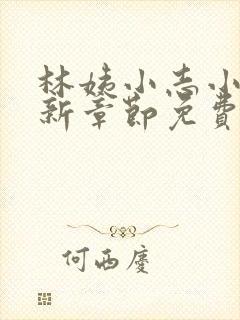 林姨小志小
新章節免費
何西慶